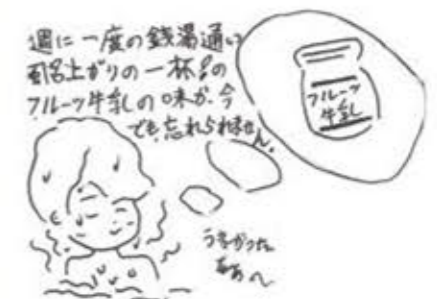 週に一度の銭湯通い
風呂上がりの一杯の
フルーツ牛乳の味が、今
でも忘れられません。
フルーツ
牛乳
うまかった
なあ〜